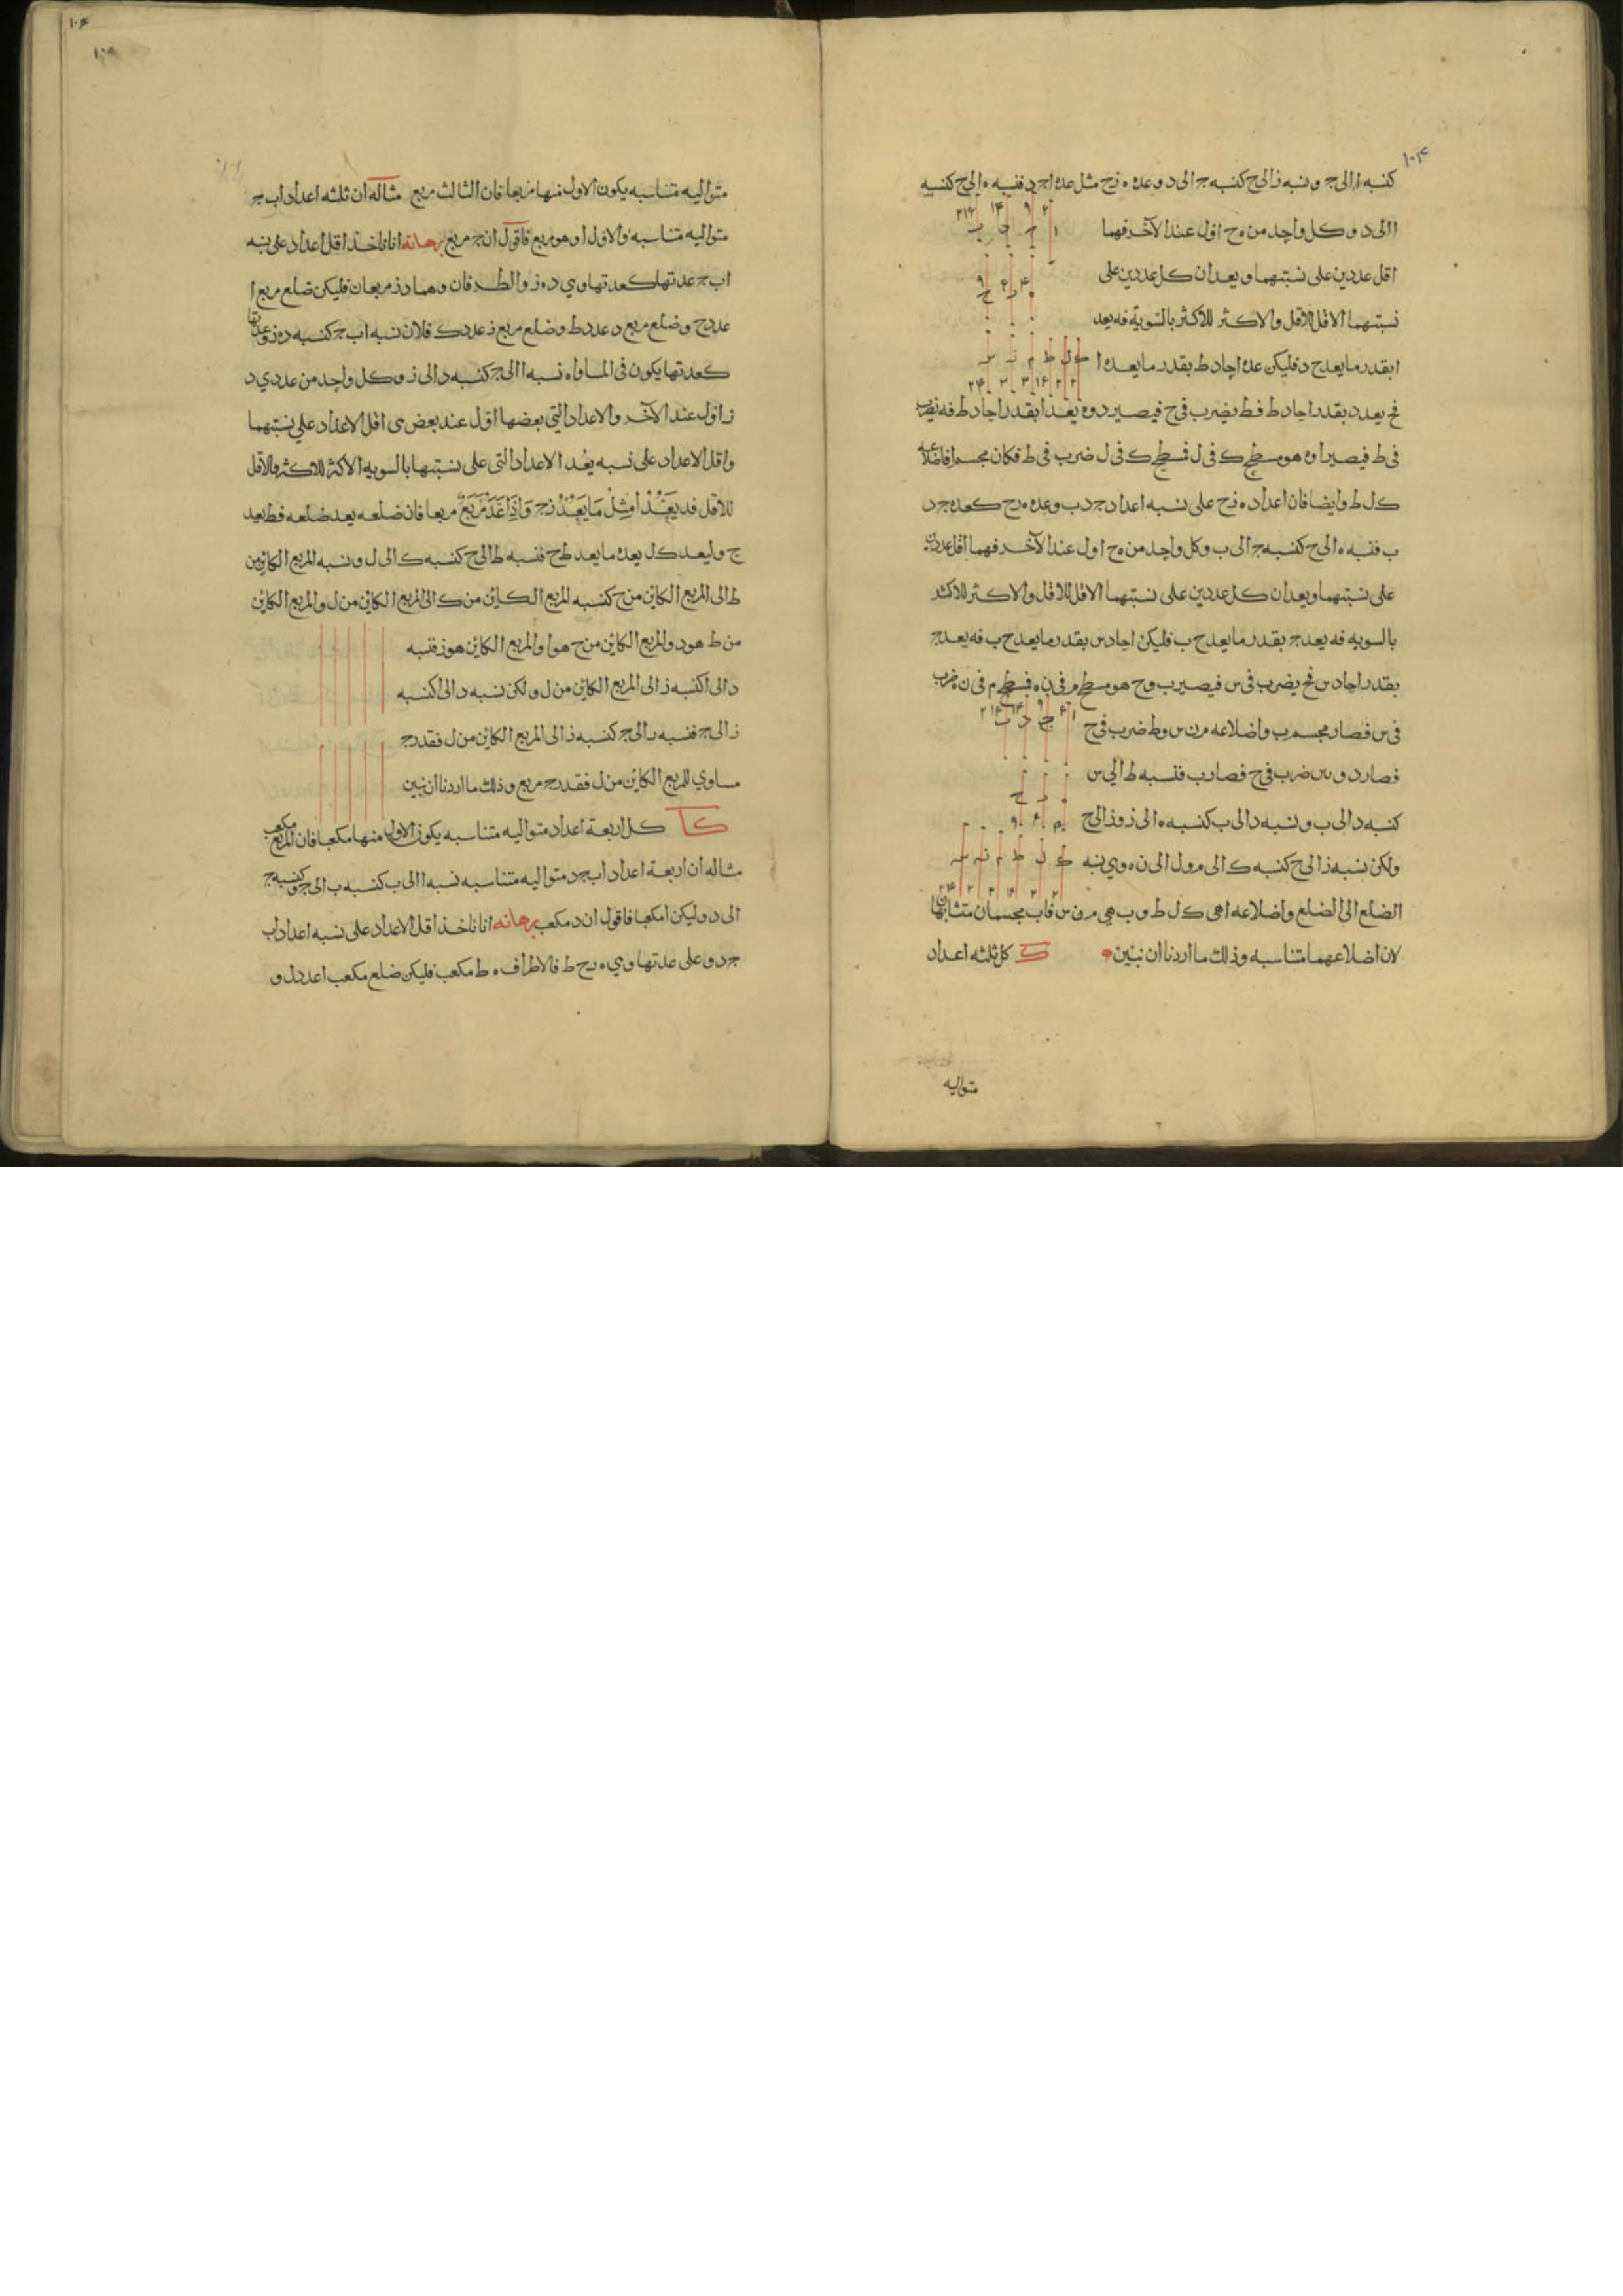 ١٠٤
كنسبه ا الى ج ونسبه ز الى ح كنسبه ج الى د وعده ه ز ح مثل عده ا ج د فنسبه ه الى ح كنسبه
ا الى د وكل واحد من ه ح اول عند الآخر فهما
اقل عددين على نسبتهما ويعدان كل عددين على
نسبتهما الاقل للاقل والاكثر للاكثر بالسويه فه يعد
ا بقدر ما يعد ح د فليكن عده احاد ط بقدر ما يعد ه ا
فح يعد د بقدر احاد ط فط يضرب في ح فيصير د وه يعد ا بقدر احاد ط فه يضرب
في ط فيصير ا وه هو مسطح ك في ل فمسطح ك في ل ضرب في ط فكان مجسم ا فاضلاعه
ك ل ط وايضا فان اعداد ه ز ح على نسبه اعداد ج د ب وعده ه ز ح كعده ج د
ب فنسبه ه الى ح كنسبه ج الى ب وكل واحد من ه ح اول عند الآخر فهما اقل عددين
على نسبتهما ويعدان كل عددين على نسبتهما الاقل للاقل والاكثر للاكثر
بالسويه فه يعد ج بقدر ما يعد ح ب فليكن احاد س بقدر ما يعد ح ب فه يعد ج
بقدر احاد س فح يضرب في س فيصير ب وح هو مسطح م في ن فمسطح م في ن ضرب
في س فصار مجسم ب واضلاعه م ن س وط ضرب في ح
فصار د و س ضرب في ح فصار ب فنسبه ط الى س
كنسبه د الى ب ونسبه د الى ب كنسبه ه الى ز وز الى ح
ولكن نسبه ز الى ح كنسبه ك الى م و ل الى ن وهي نسبه
الضلع الى الضلع واضلاعه ا هي ك ل ط و ب هي م ن س فاب مجسمان متشابهان
لان اضلاعهما متناسبه وذلك ما اردنا ان نبين ك كل ثلثه اعداد
متواليه
١٠٤
متواليه متناسبه يكون الاول منها مربعا فان الثالث مربع مثاله ان ثلثه اعداد ا ب ج
متواليه متناسبه والاول ا وهو مربع فاقول ان ج مربع برهانه انا ناخذ اقل اعداد على نسبه
ا ب ج عدتها كعدتها وهي د ه ز والطرفان وهما د ز مربعان فليكن ضلع مربع ا
عدد ح وضلع مربع د عدد ط وضلع مربع ز عدد ك فلان نسبه ا ب ج كنسبه د ه ز وعدتها
كعدتها يكون في المساواه نسبه ا الى ج كنسبه د الى ز وكل واحد من عددي د
ز اول عند الآخر والاعداد التي بعضها اول عند بعض هى اقل الاعداد على نسبتهما
واقل الاعداد على نسبه يعد الاعداد التي على نسبتها بالسويه الاكثر للاكثر والاقل
للاقل فد يعد ا مثل ما يعد ز ج واذا عد مربع مربعا فان ضلعه يعد ضلعه فط يعد
ح وليعد ك ل يعده ما يعد ط ح فنسبه ط الى ح كنسبه ك الى ل ونسبه المربع الكائن من
ط الى المربع الكائن من ح كنسبه المربع الكائن من ك الى المربع الكائن من ل والمربع الكائن
من ط هو د والمربع الكائن من ح هو ا والمربع الكائن هو ز فنسبه
د الى ا كنسبه ز الى المربع الكائن من ل ولكن نسبه د الى ا كنسبه
ز الى ج فنسبه ز الى ج كنسبه ز الى المربع الكائن من ل فقد ر ج
مساوي للمربع الكائن من ل فقدر ج مربع وذلك ما اردنا ان نبين
كا كل اربعة اعداد متواليه متناسبه يكون الاول منها مكعبا فان المربع مكعب
مثاله ان اربعة اعداد ا ب ج د متواليه متناسبه نسبه ا الى ب كنسبه ب الى ج وكنسبه ج
الى د وليكن ا مكعبا فاقول ان د مكعب برهانه انا ناخذ اقل الاعداد على نسبه اعداد ا ب
ج د وعلى عدتها وهي ه ز ح ط فالاطراف ه ط مكعب فليكن ضلع مكعب ا عدد ل و